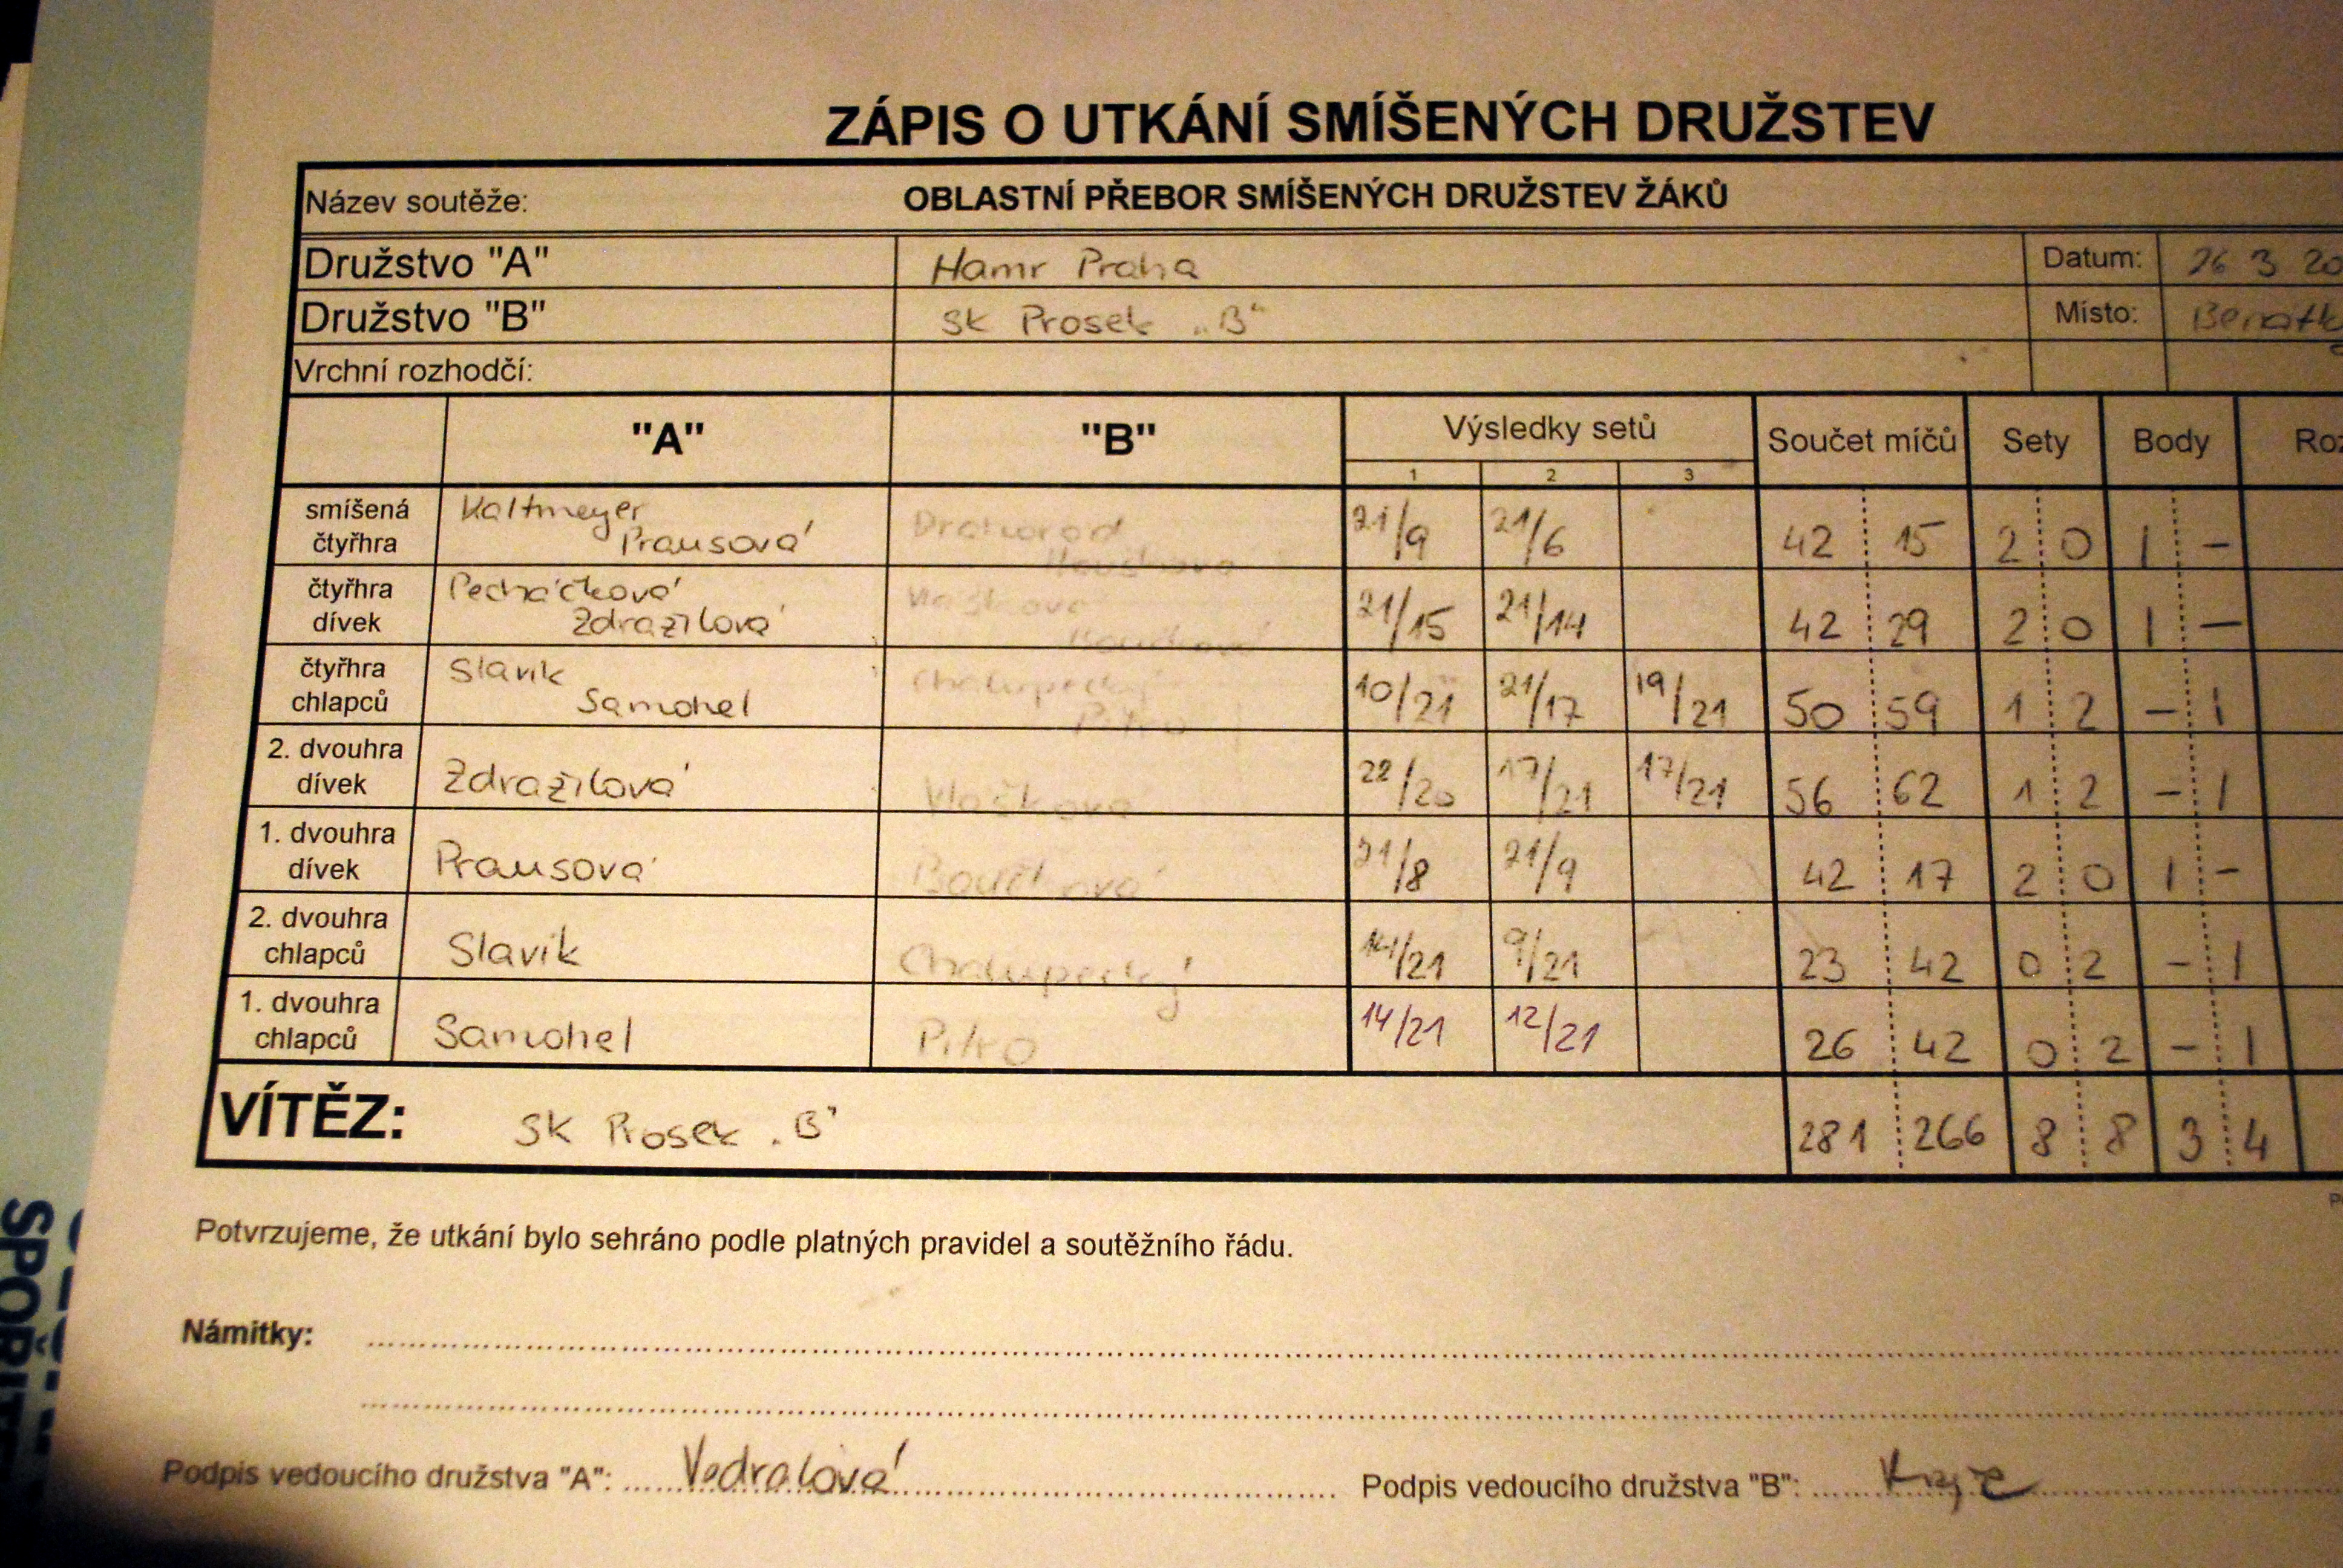 ZÁPIS O UTKÁNÍ SMÍŠENÝCH DRUŽSTEV
Název soutěže: OBLASTNÍ PŘEBOR SMÍŠENÝCH DRUŽSTEV ŽÁKŮ
Družstvo "A" Hamr Praha Datum: 26 3 20
Družstvo "B" SK Prosek „B" Místo: Benátky
Vrchní rozhodčí:
"A" "B" Výsledky setů Součet míčů Sety Body Roz
1 2 3
smíšená čtyřhra Kaltmeyer Prausová 21/9 21/6 42 15 2 0 1 –
čtyřhra dívek Pecháčková Zdražilová 21/15 21/14 42 29 2 0 1 –
čtyřhra chlapců Slavík Samohel Chalupecký Pitro 10/21 21/17 19/21 50 59 1 2 – 1
2. dvouhra dívek Zdražilová Vlačková 22/20 17/21 17/21 56 62 1 2 – 1
1. dvouhra dívek Prausová 21/8 21/9 42 17 2 0 1 –
2. dvouhra chlapců Slavík Chalupecký 14/21 9/21 23 42 0 2 – 1
1. dvouhra chlapců Samohel Pitro 14/21 12/21 26 42 0 2 – 1
VÍTĚZ: SK Prosek „B" 281 266 8 8 3 4
Potvrzujeme, že utkání bylo sehráno podle platných pravidel a soutěžního řádu.
Námitky:
Podpis vedoucího družstva "A": Vedralová Podpis vedoucího družstva "B":